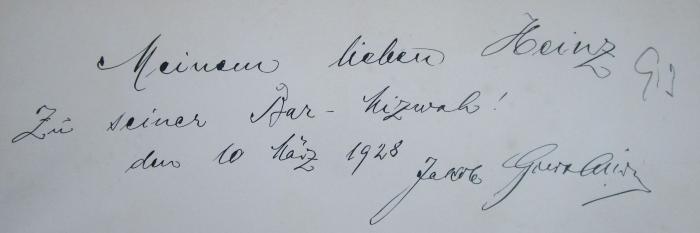 Meinem lieben Heinz
Zu seiner Bar-Mizwah!
den 10 März 1928
Jakob